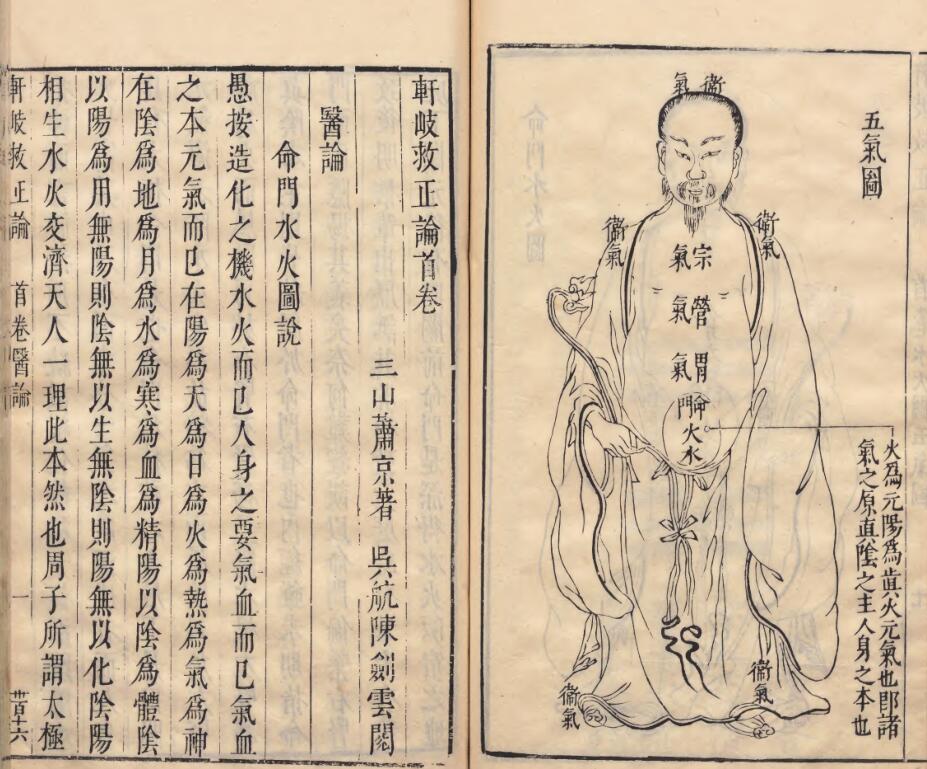 五氣圖
衞氣
衞氣
衞氣
宗氣
營氣
胃氣
命門
火水
火爲元陽爲眞火元氣也卽諸
氣之原直陰之主人身之本也
衞氣
衞氣
軒岐救正論首卷
三山蕭京著 吳航陳劍雲閱
醫論
命門水火圖說
愚按造化之機水火而已人身之要氣血而已氣血
之本元氣而已在陽爲天爲日爲火爲熱爲氣爲神
在陰爲地爲月爲水爲寒爲血爲精陽以陰爲體陰
以陽爲用無陽則陰無以生無陰則陽無以化陰陽
相生水火交濟天人一理此本然也周子所謂太極
軒岐救正論 首卷醫論 一